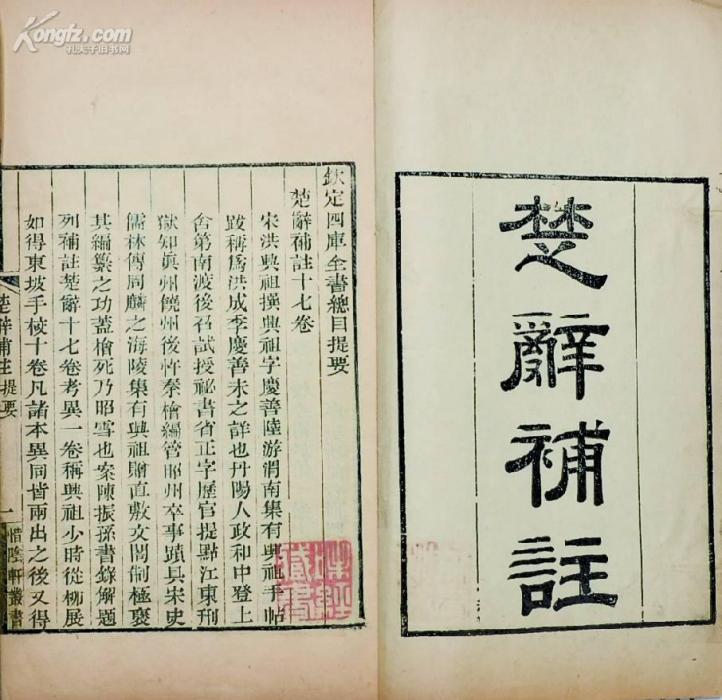 楚辭補註
欽定四庫全書總目提要
楚辭補註十七卷
宋洪興祖撰興祖字慶善陸游渭南集有興祖手帖
跋稱爲洪成季慶善未之詳也丹陽人政和中登上
舍第南渡後召試授祕書省正字歷官提點江東刑
獄知眞州饒州後忤秦檜編管昭州卒事蹟具宋史
儒林傳周麟之海陵集有興祖贈直敷文閣制極褒
其編纂之功蓋檜死乃昭雪也案陳振孫書錄解題
列補註楚辭十七卷考異一卷稱興祖少時從柳展
如得東坡手校十卷凡諸本異同皆兩出之後又得
楚辭補註提要
一
惜陰軒叢書
Kongfz.com
孔夫子旧书网